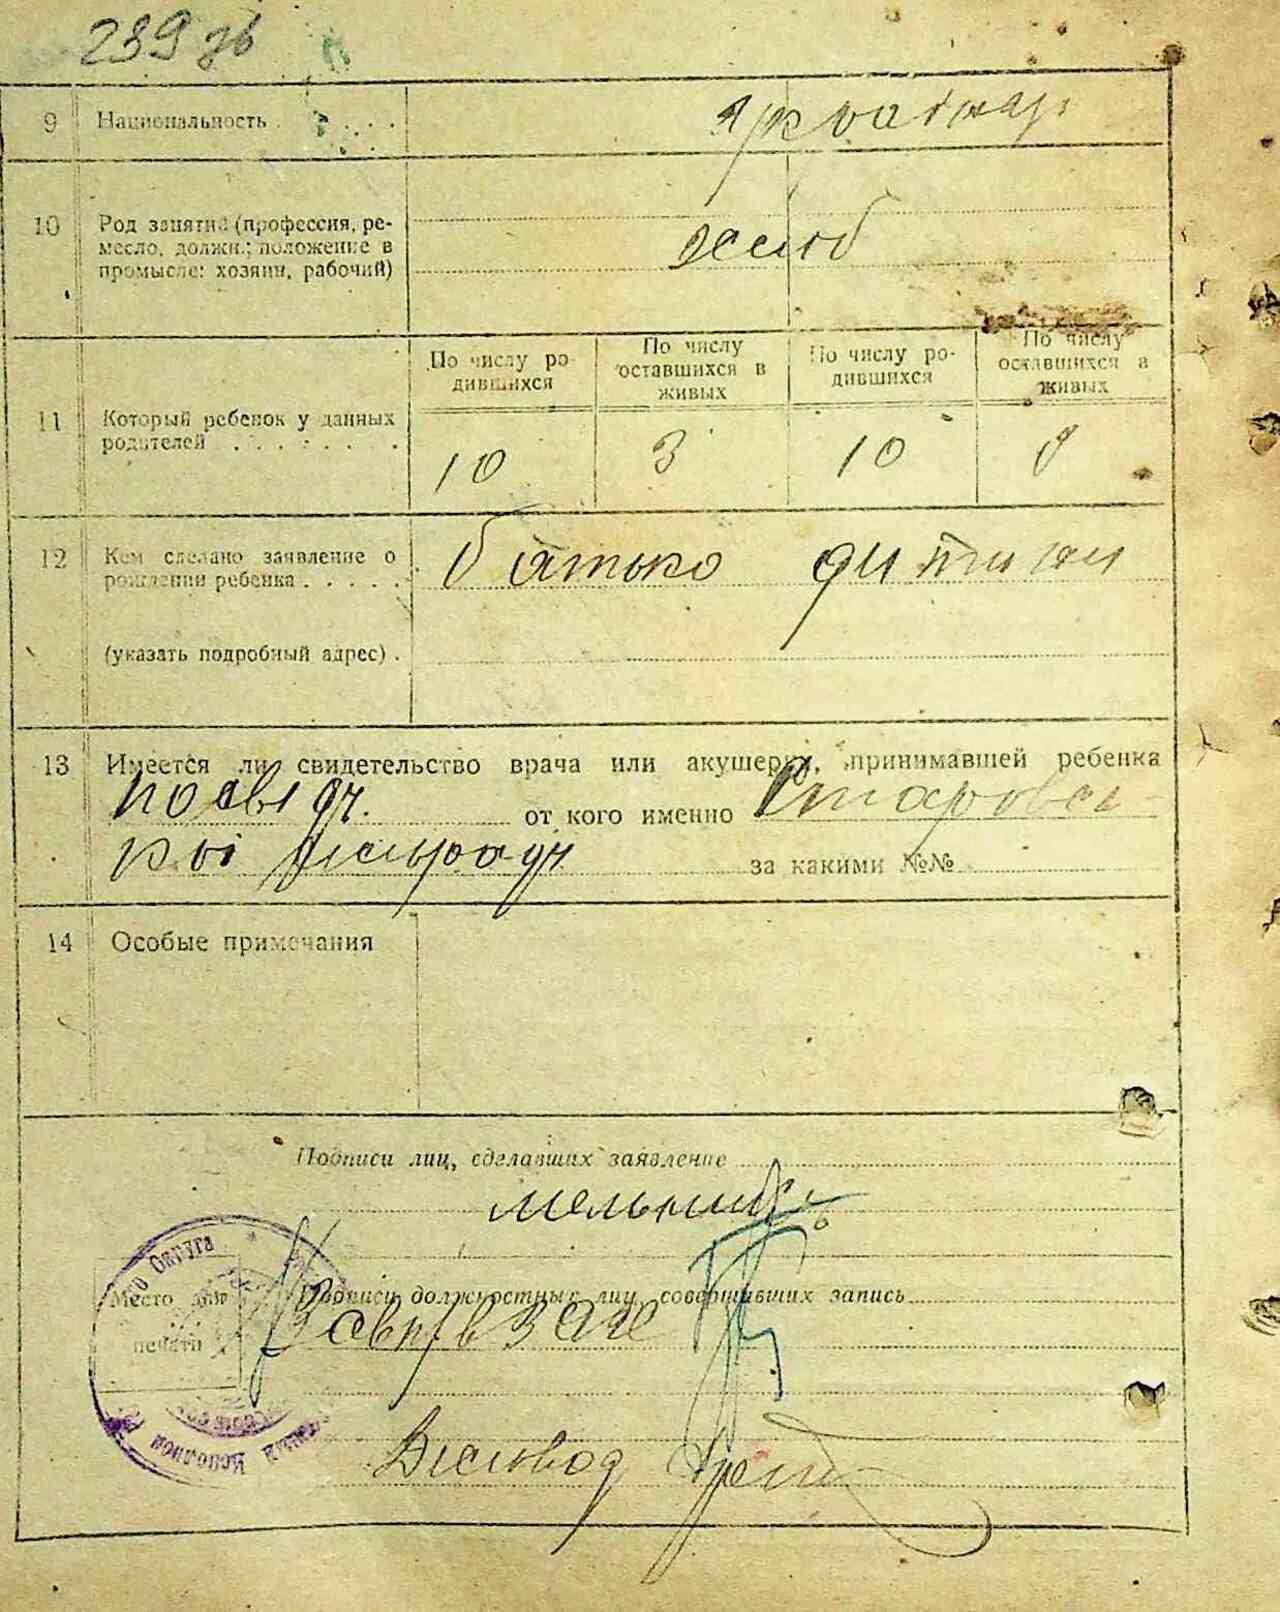 239 зв
9 Национальность
10 Род занятия (профессия, ре-
месло, должн.; положение в
промысле: хозяин, рабочий)
хліб
11 Который ребенок у данных
родителей
По числу ро-
дившихся
По числу
оставшихся в
живых
По числу ро-
дившихся
По числу
оставшихся в
живых
10 3 10
12 Кем сделано заявление о
рождении ребенка
батько дитини
(указать подробный адрес)
13 Имеется ли свидетельство врача или акушерки, принимавшей ребенка
посвідч. от кого именно
за какими №№
14 Особые примечания
Подписи лиц, сделавших заявление
Мельник
Место для
печати
Подписи должностных лиц, совершивших запись
Діловод
Округа